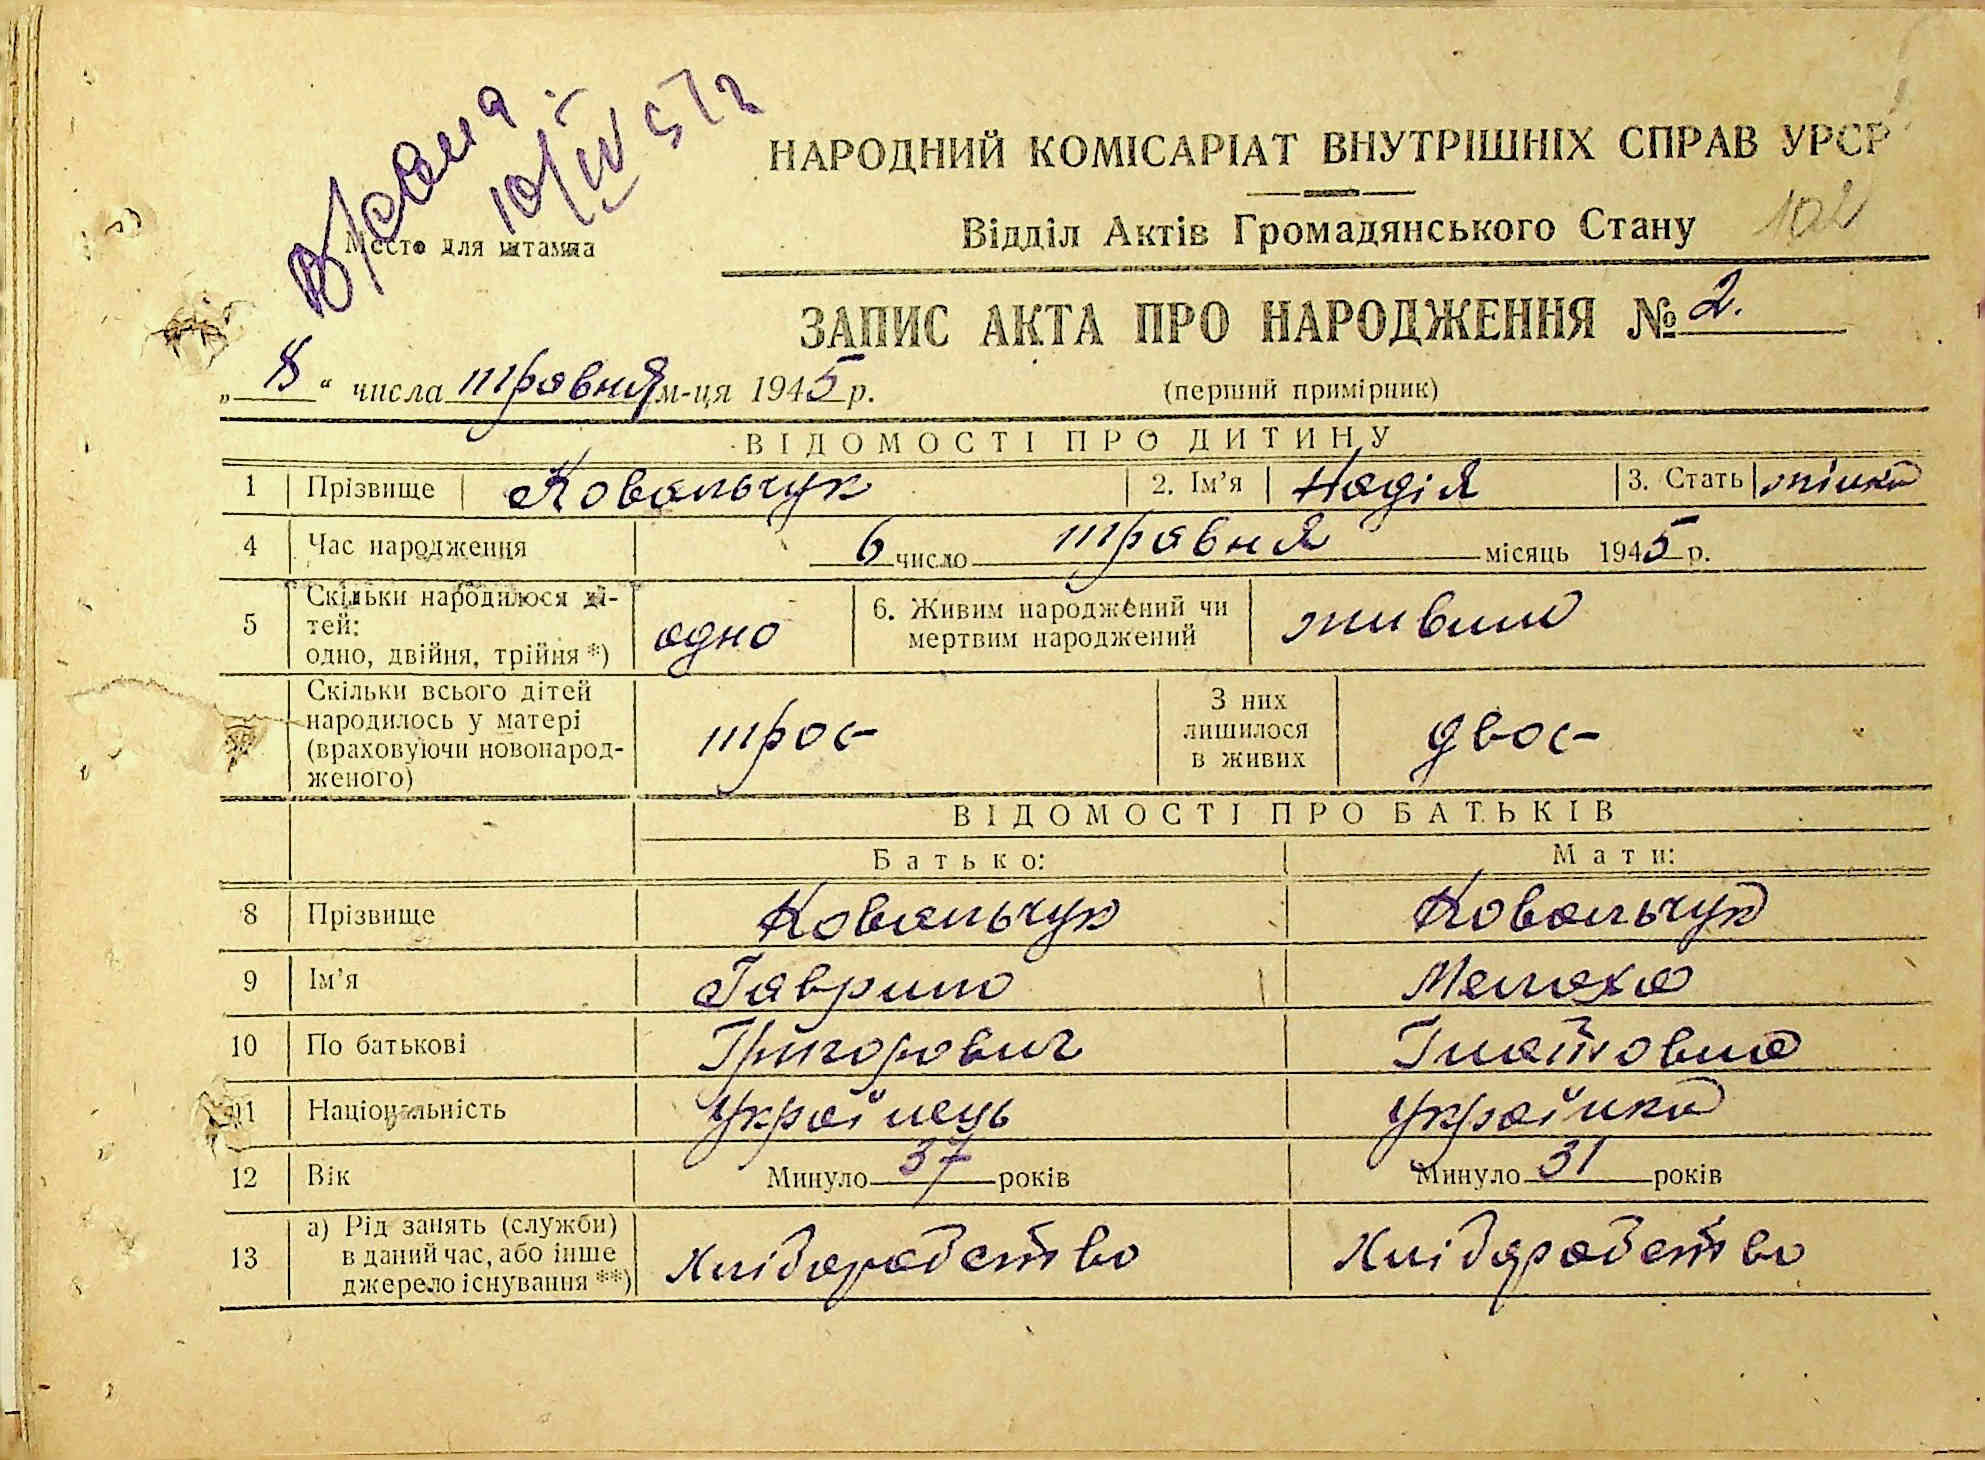 10/IV 57 г
НАРОДНИЙ КОМІСАРІАТ ВНУТРІШНІХ СПРАВ УРСР
Место для штампа
Відділ Актів Громадянського Стану
102
ЗАПИС АКТА ПРО НАРОДЖЕННЯ № 2.
„8“ числа травня м-ця 1945 р.
(перший примірник)
ВІДОМОСТІ ПРО ДИТИНУ
1 Прізвище Ковальчук 2. Ім'я Надія 3. Стать жінка
4 Час народження 6 число травня місяць 1945 р.
5 Скільки народилося ді-
тей:
одно, двійня, трійня *) одно 6. Живим народжений чи
мертвим народжений живим
Скільки всього дітей
народилось у матері
(враховуючи новонарод-
женого) троє З них
лишилося
в живих двоє
ВІДОМОСТІ ПРО БАТЬКІВ
Батько: Мати:
8 Прізвище Ковальчук Ковальчук
9 Ім'я Гаврило Малаха
10 По батькові Григорович Гнатовна
11 Національність Українець Українка
12 Вік Минуло 37 років Минуло 31 років
13 а) Рід занять (служби)
в даний час, або інше
джерело існування **) Хліборобство Хліборобство